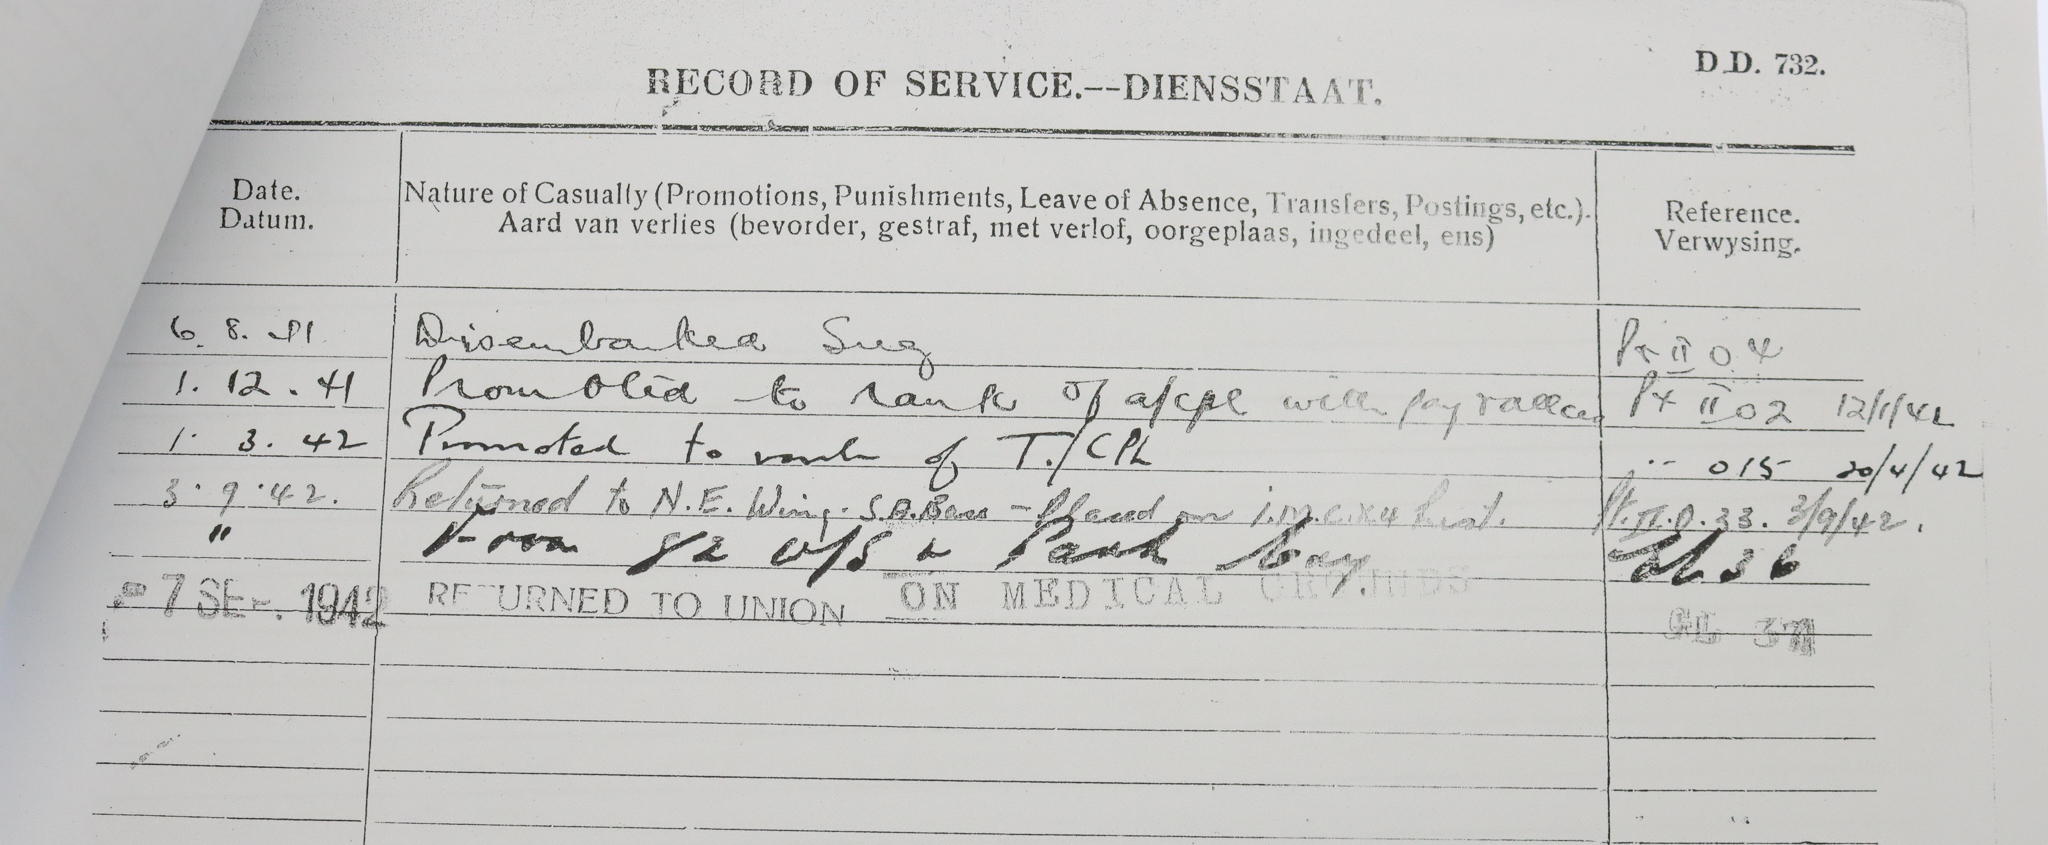 D.D. 732.
RECORD OF SERVICE.--DIENSSTAAT.
Date. Nature of Casualty (Promotions, Punishments, Leave of Absence, Transfers, Postings, etc.). Reference.
Datum. Aard van verlies (bevorder, gestraf, met verlof, oorgeplaas, ingedeel, ens) Verwysing.
6. 8. 41 Disembarked Suez Pt II 0 4
1. 12. 41 Promoted to rank of a/cpl with pay Pt II 02 12/1/42
1. 3. 42 Promoted to rank of T./CPL " 015 20/4/42
3.9.42. Returned to N.E. Wing. S.A. Base - Placed on List. Pt. II. 0. 33. 3/9/42.
" From 36
7 SEP. 1942 RETURNED TO UNION ON MEDICAL GROUNDS